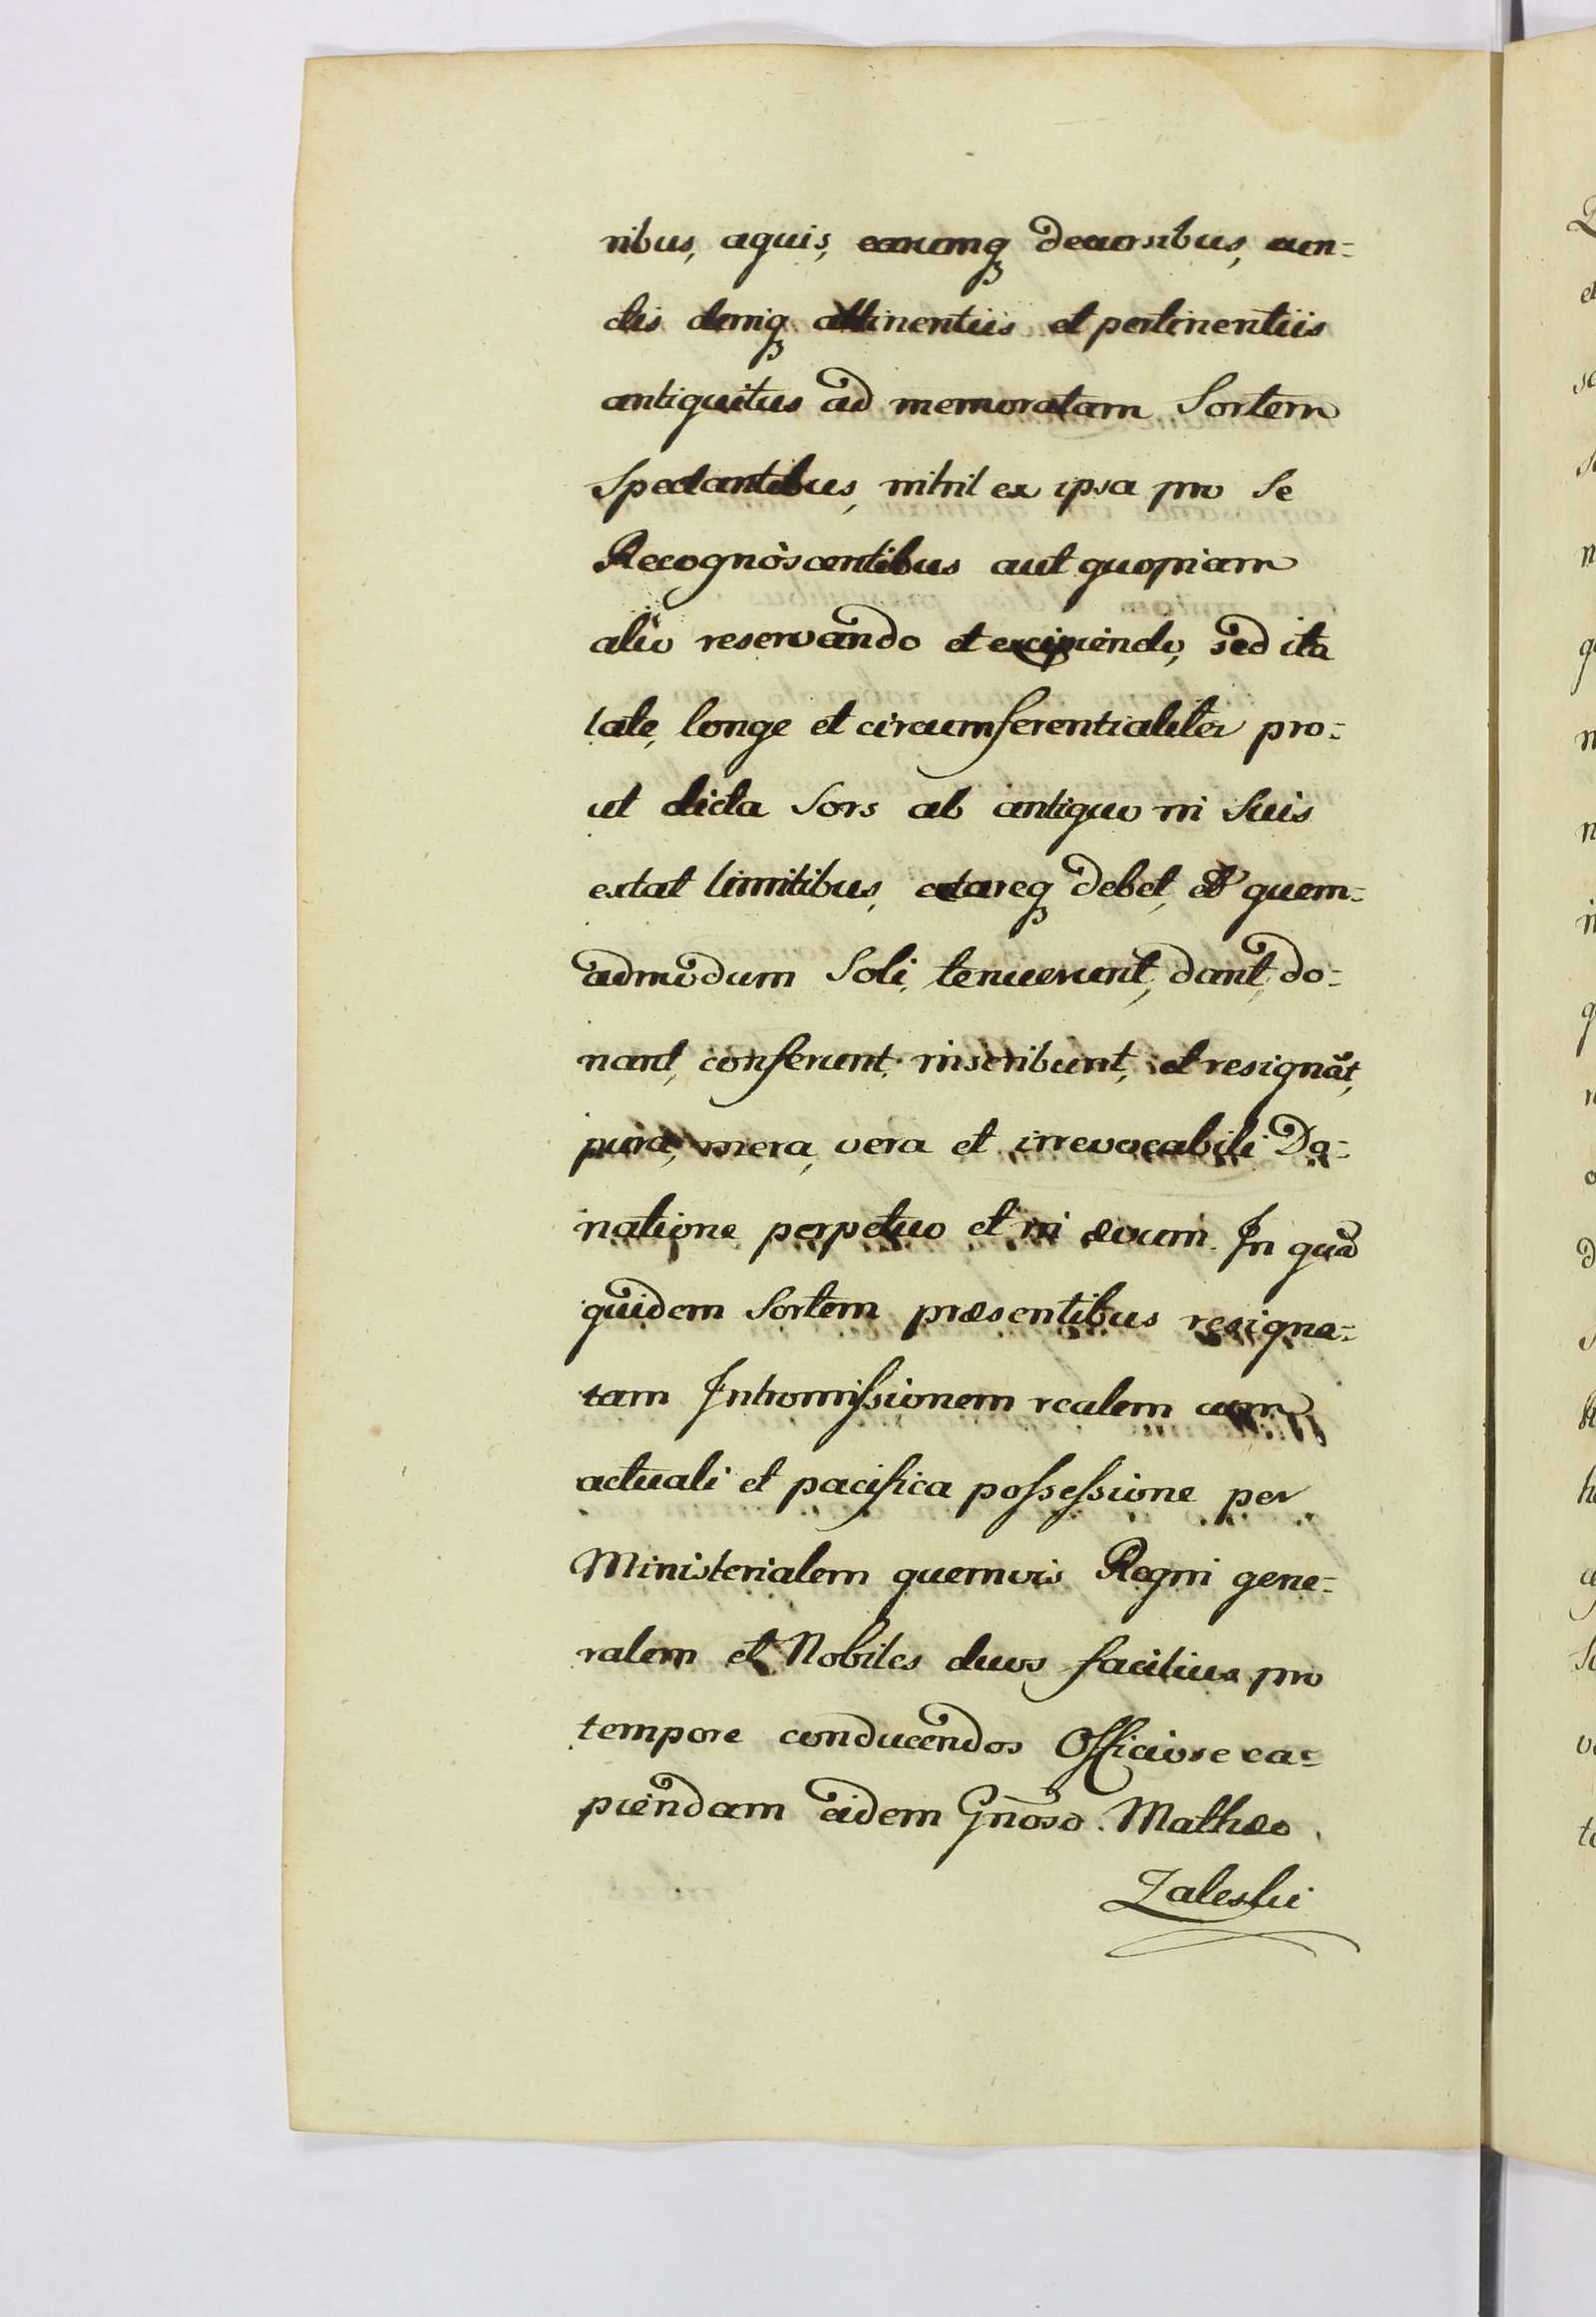 ribus, aquis, earumq decursibus, cun=
ctis deniq attinentiis et pertinentiis
antiquitus ad memoratam Sortem
Spectantibus, nihil ex ipsa pro Se
Recognoscentibus aut quopiam
alio reservando et excipiendo, sed ita
late, longe et circumferentialiter pro=
ut dicta Sors ab antiquo in Suis
extat limitibus, extareq debet, et quem=
admodum Soli tenuerunt, dant, do=
nant, conferunt, inscribunt, et resignãt,
pura, mera, vera et irrevocabili Do=
natione perpetuo et in ævum. In quã
quidem Sortem præsentibus resigna=
tam Intromissionem realem cum
actuali et pacifica possessione per
Ministerialem quemvis Regni gene=
ralem et Nobiles duos facilius pro
tempore conducendos Officiose ca=
piendam eidem Gnõso Mathæo
Zaleski